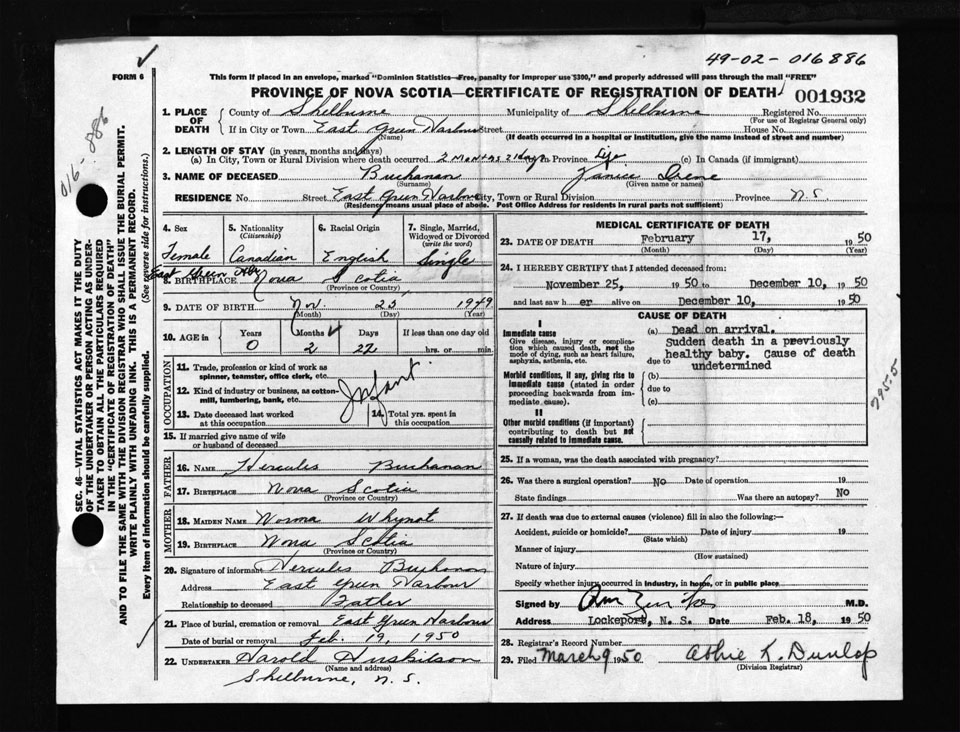 49-02-016886
FORM 6
This form if placed in an envelope, marked "Dominion Statistics—Free, penalty for improper use $300," and properly addressed will pass through the mail "FREE"
PROVINCE OF NOVA SCOTIA—CERTIFICATE OF REGISTRATION OF DEATH 001932
016-886
SEC. 46—VITAL STATISTICS ACT MAKES IT THE DUTY
OF THE UNDERTAKER OR PERSON ACTING AS UNDER-
TAKER TO OBTAIN ALL THE PARTICULARS REQUIRED
IN THE "CERTIFICATE OF REGISTRATION OF DEATH"
AND TO FILE THE SAME WITH THE DIVISION REGISTRAR WHO SHALL ISSUE THE BURIAL PERMIT.
WRITE PLAINLY WITH UNFADING INK. THIS IS A PERMANENT RECORD.
Every item of Information should be carefully supplied. (See reverse side for instructions.)
1. PLACE OF DEATH County of Shelburne Municipality of Shelburne Registered No.
(For use of Registrar General only)
If in City or Town East Green Harbour Street House No.
(Name) (If death occurred in a hospital or institution, give the name instead of street and number)
2. LENGTH OF STAY (in years, months and days)
(a) In City, Town or Rural Division where death occurred 2 months 21 days In Province Life (c) In Canada (if immigrant)
3. NAME OF DECEASED Buchanan Janice Irene
(Surname) (Given name or names)
RESIDENCE No Street East Green Harbour City, Town or Rural Division Province N.S.
(Residency means usual place of abode. Post Office Address for residents in rural parts not sufficient)
4. Sex 5. Nationality (Citizenship) 6. Racial Origin 7. Single, Married, Widowed or Divorced (write the word)
Female Canadian English Single
East Green Hbr
8. BIRTHPLACE Nova Scotia
(Province or Country)
9. DATE OF BIRTH Nov. 25, 1949
(Month) (Day) (Year)
10. AGE in Years Months Days If less than one day old
0 2 22 hrs. or min.
OCCUPATION
11. Trade, profession or kind of work as
spinner, teamster, office clerk, etc.
12. Kind of industry or business, as cotton-
mill, lumbering, bank, etc.
Infant
13. Date deceased last worked
at this occupation
14. Total yrs. spent in
this occupation
15. If married give name of wife
or husband of deceased
FATHER
16. NAME Hercules Buchanan
17. BIRTHPLACE Nova Scotia
(Province or Country)
MOTHER
18. MAIDEN NAME Norma Whynot
19. BIRTHPLACE Nova Scotia
(Province or Country)
20. Signature of informant Hercules Buchanan
Address East Green Harbour
Relationship to deceased Father
21. Place of burial, cremation or removal East Green Harbour
Date of burial or removal Feb. 19, 1950
22. UNDERTAKER Harold Huskilson
(Name and address)
Shelburne, N.S.
MEDICAL CERTIFICATE OF DEATH
23. DATE OF DEATH February 17, 1950
(Month) (Day) (Year)
24. I HEREBY CERTIFY that I attended deceased from:
November 25, 1950 to December 10, 1950
and last saw h er alive on December 10, 1950
CAUSE OF DEATH
I
Immediate cause
Give disease, injury or complica-
tion which caused death, not the
mode of dying, such as heart failure,
asphyxia, asthenia, etc.
(a) Dead on arrival.
Sudden death in a previously
healthy baby. Cause of death
due to undetermined
Morbid conditions, if any, giving rise to
immediate cause (stated in order
proceeding backwards from im-
mediate cause).
(b)
due to
(c)
795.5
II
Other morbid conditions (if important)
contributing to death but not
causally related to immediate cause.
25. If a woman, was the death associated with pregnancy?
26. Was there a surgical operation? No Date of operation 19
State findings Was there an autopsy? No
27. If death was due to external causes (violence) fill in also the following:—
Accident, suicide or homicide? Date of injury 19
(State which)
Manner of injury
(How sustained)
Nature of injury
Specify whether injury occurred in industry, in home, or in public place
Signed by M.D.
Address Lockeport, N. S. Date Feb. 18, 1950
28. Registrar's Record Number
29. Filed March 9 1950 Abbie K. Dunlop
(Division Registrar)